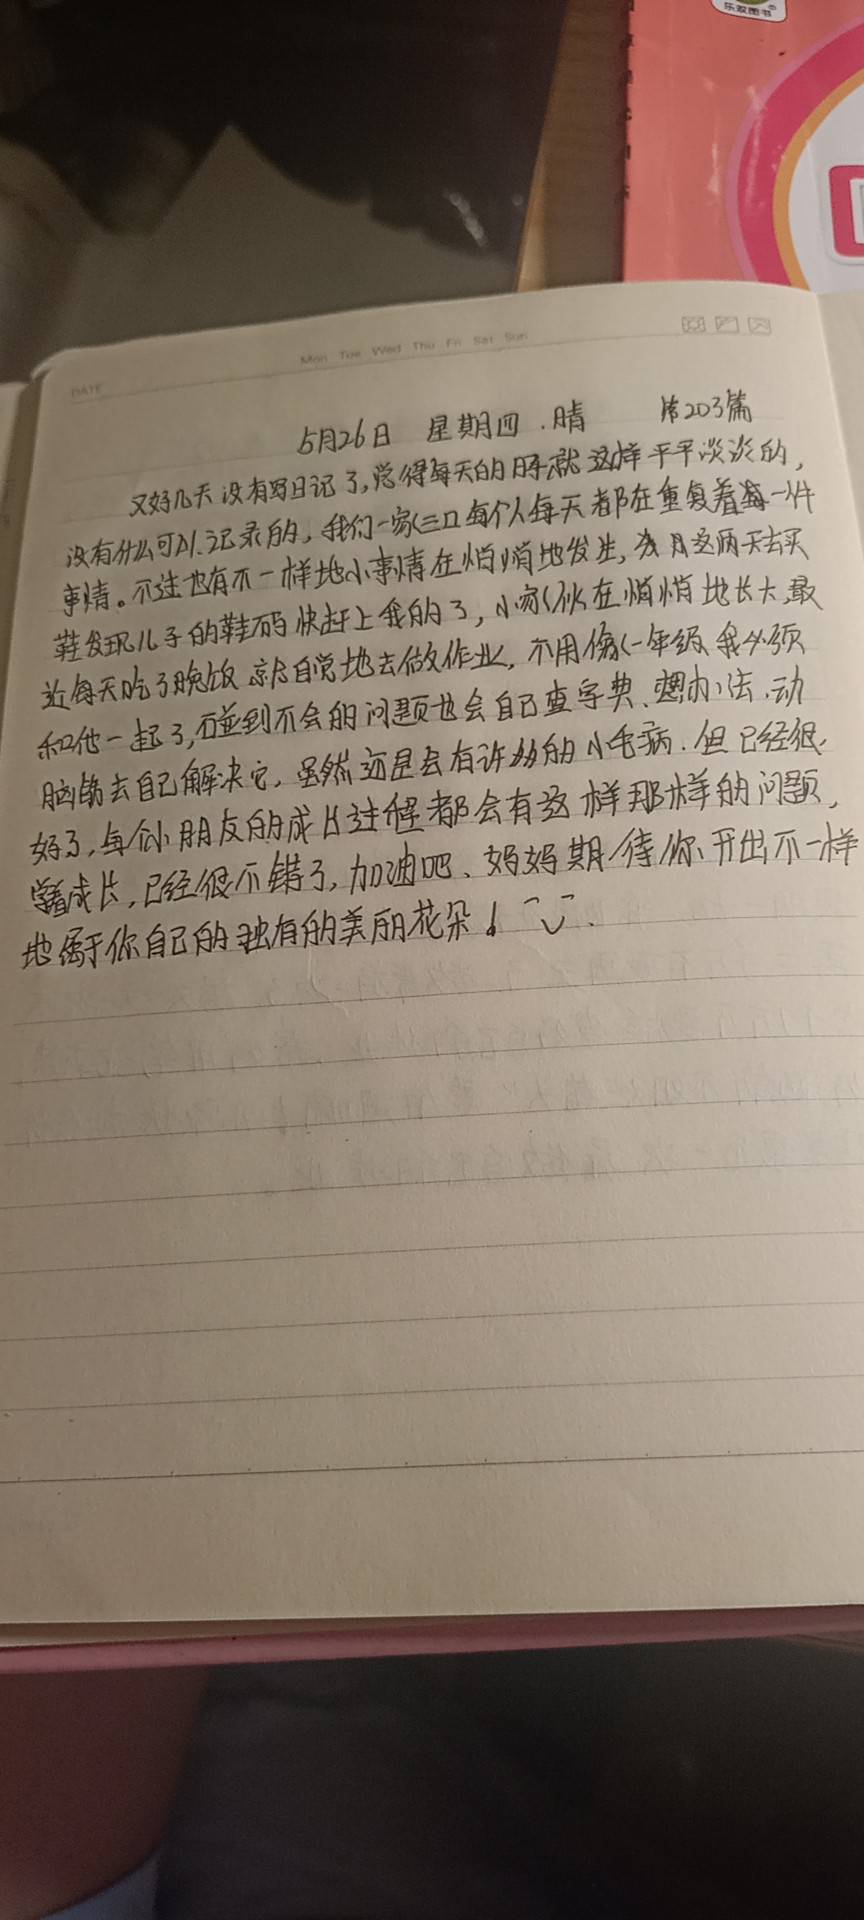 乐双图书
DATE
Mon Tue Wed Thu Fri Sat Sun
5月26日 星期四.晴 第203篇
又好几天没有写日记了,觉得每天的日子就这样平平淡淡的,
没有什么可以记录的,我们一家三口每个人每天都在重复着每一件
事情。不过也有不一样地小事情在悄悄地发生,这两天去买
鞋发现儿子的鞋码快赶上我的了,小家伙在悄悄地长大,最
近每天吃了晚饭就自觉地去做作业,不用像一年级我必须
和他一起了,碰到不会的问题也会自己查字典、想办法,动
脑筋去自己解决它,虽然还是会有许多的小毛病.但已经很
好了,每个小朋友的成长过程都会有这样那样的问题,
成长,已经很不错了,加油吧、妈妈期待你开出不一样
地属于你自己的独有的美丽花朵!